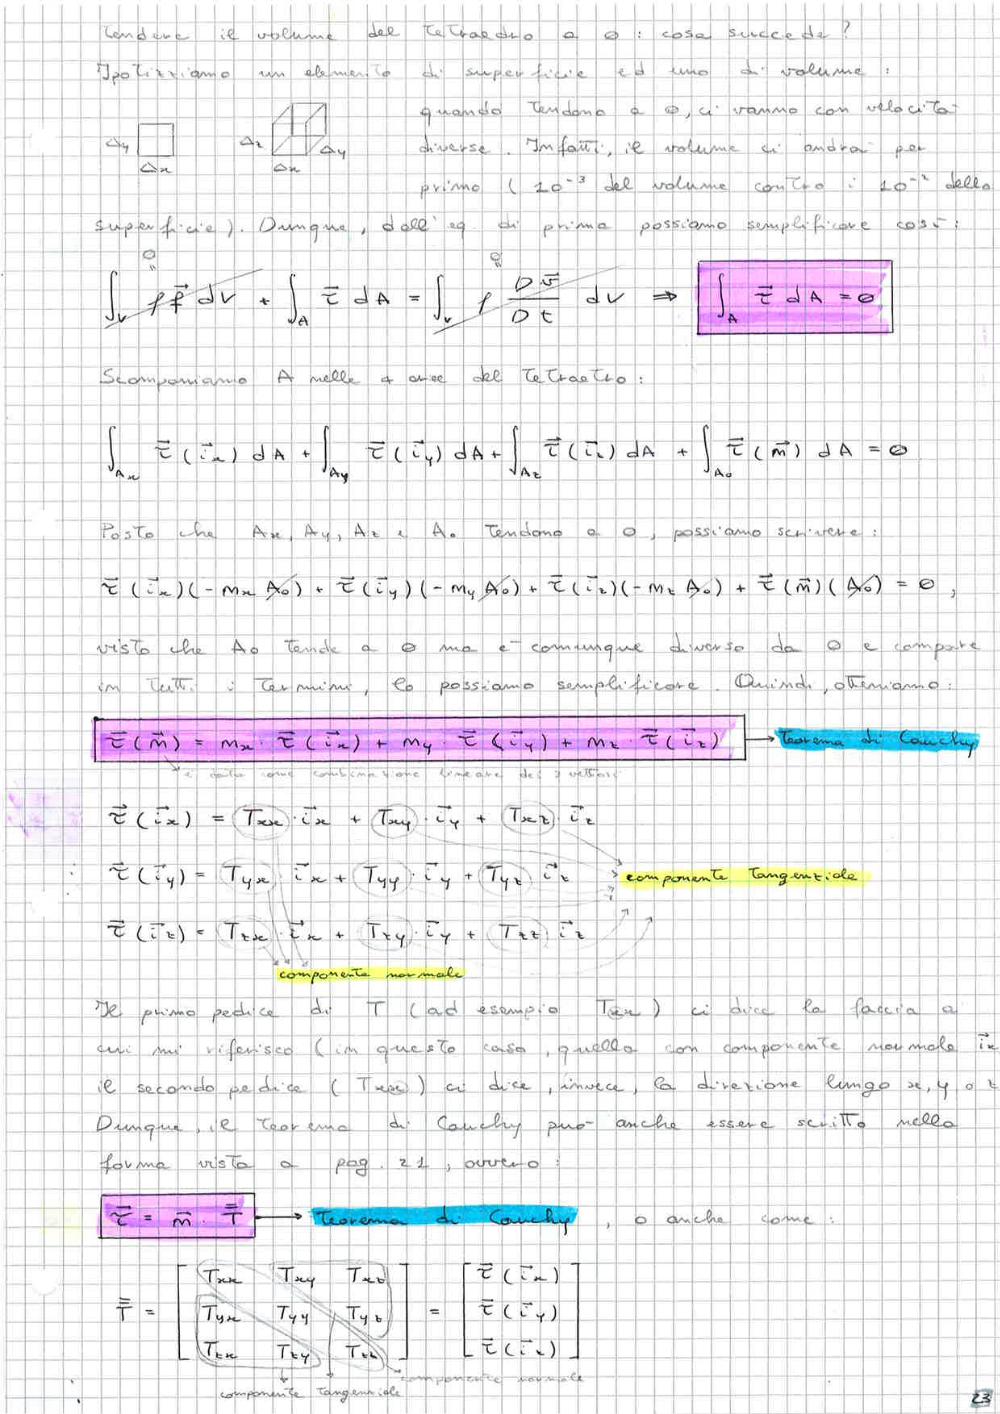 tendere il volume del tetraedro a 0 : cosa succede?
Ipotizziamo un elemento di superficie ed uno di volume :
quando tendono a 0, ci vanno con velocità
Δy Δx Δz Δx Δy
diverse. Infatti, il volume ci andrà per
primo ( 10⁻³ del volume contro i 10⁻² della
superficie). Dunque, dall'eq. di prima possiamo semplificare così:
0 0
∫_V ρ f⃗ dV + ∫_A τ⃗ dA = ∫_V ρ Dv⃗/Dt dV ⇒ ∫_A τ⃗ dA = 0
Scomponiamo A nelle 4 aree del tetraetro :
∫_Ax τ⃗ (i⃗x) dA + ∫_Ay τ⃗ (i⃗y) dA + ∫_Az τ⃗ (i⃗z) dA + ∫_A0 τ⃗ (n⃗) dA = 0
Posto che Ax, Ay, Az e A0 tendono a 0, possiamo scrivere :
τ⃗ (i⃗x)(-nx A0) + τ⃗ (i⃗y)(-ny A0) + τ⃗ (i⃗z)(-nz A0) + τ⃗ (n⃗)(A0) = 0 ,
visto che A0 tende a 0 ma è comunque diverso da 0 e compare
in tutti i termini, lo possiamo semplificare. Quindi, otteniamo:
τ⃗ (n⃗) = nx · τ⃗ (i⃗x) + ny · τ⃗ (i⃗y) + nz · τ⃗ (i⃗z) → Teorema di Cauchy
è dato come combinazione lineare dei 3 vettori
τ⃗ (i⃗x) = Txx · i⃗x + Txy · i⃗y + Txz · i⃗z
τ⃗ (i⃗y) = Tyx · i⃗x + Tyy · i⃗y + Tyz · i⃗z
componente tangenziale
τ⃗ (i⃗z) = Tzx · i⃗x + Tzy · i⃗y + Tzz · i⃗z
componente normale
Il primo pedice di T (ad esempio Txx) ci dice la faccia a
cui mi riferisco (in questo caso, quella con componente normale i⃗x
il secondo pedice ( Txx) ci dice, invece, la direzione lungo x, y o z
Dunque, il teorema di Cauchy può anche essere scritto nella
forma vista a pag. 21, ovvero :
τ⃗ = n⃗ · T̿ → Teorema di Cauchy , o anche come :
Txx Txy Txz τ⃗ (i⃗x)
T̿ = Tyx Tyy Tyz = τ⃗ (i⃗y)
Tzx Tzy Tzz τ⃗ (i⃗z)
componente normale
componente tangenziale
23